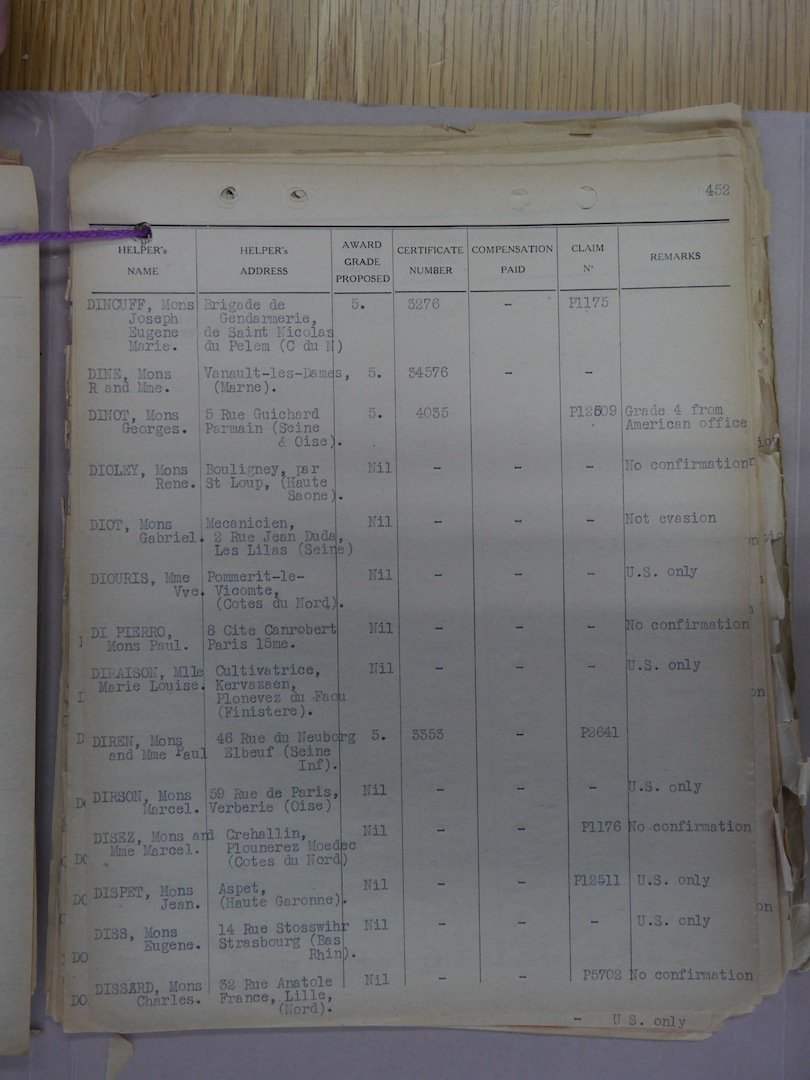 452
HELPER's NAME | HELPER's ADDRESS | AWARD GRADE PROPOSED | CERTIFICATE NUMBER | COMPENSATION PAID | CLAIM Nº | REMARKS
DINCUFF, Mons | Brigade de | 5. | 3276 | - | P1175
Joseph | Gendarmerie,
Eugene | de Saint Nicolas
Marie. | du Pelem (C du N)
DINE, Mons | Vanault-les-Dames, | 5. | 34576 | - | -
R and Mme. | (Marne).
DINOT, Mons | 5 Rue Guichard | 5. | 4035 | - | P12509 | Grade 4 from
Georges. | Parmain (Seine | American office
& Oise).
DIOLEY, Mons | Bouligney, par | Nil | - | - | - | No confirmation
Rene. | St Loup, (Haute
Saone).
DIOT, Mons | Mecanicien, | Nil | - | - | - | Not evasion
Gabriel. | 2 Rue Jean Duda,
Les Lilas (Seine)
DIOURIS, Mme | Pommerit-le- | Nil | - | - | - | U.S. only
Vve. | Vicomte,
(Cotes du Nord).
DI PIERRO, | 8 Cite Canrobert | Nil | - | - | - | No confirmation
Mons Paul. | Paris 15me.
DIRAISON, Mlle | Cultivatrice, | Nil | - | - | - | U.S. only
Marie Louise. | Kervazaen,
Plonevez du Faou
(Finistere).
DIREN, Mons | 46 Rue du Neuborg | 5. | 3353 | - | P2641
and Mme Paul | Elbeuf (Seine
Inf).
DIRSON, Mons | 59 Rue de Paris, | Nil | - | - | - | U.S. only
Marcel. | Verberie (Oise)
DISEZ, Mons and | Crehallin, | Nil | - | - | P1176 | No confirmation
Mme Marcel. | Plounerez Moedec
(Cotes du Nord)
DISPET, Mons | Aspet, | Nil | - | - | P12511 | U.S. only
Jean. | (Haute Garonne).
DISS, Mons | 14 Rue Stosswihr | Nil | - | - | - | U.S. only
Eugene. | Strasbourg (Bas
Rhin).
DISSARD, Mons | 32 Rue Anatole | Nil | - | - | P5702 | No confirmation
Charles. | France, Lille,
(Nord).
- U S. only